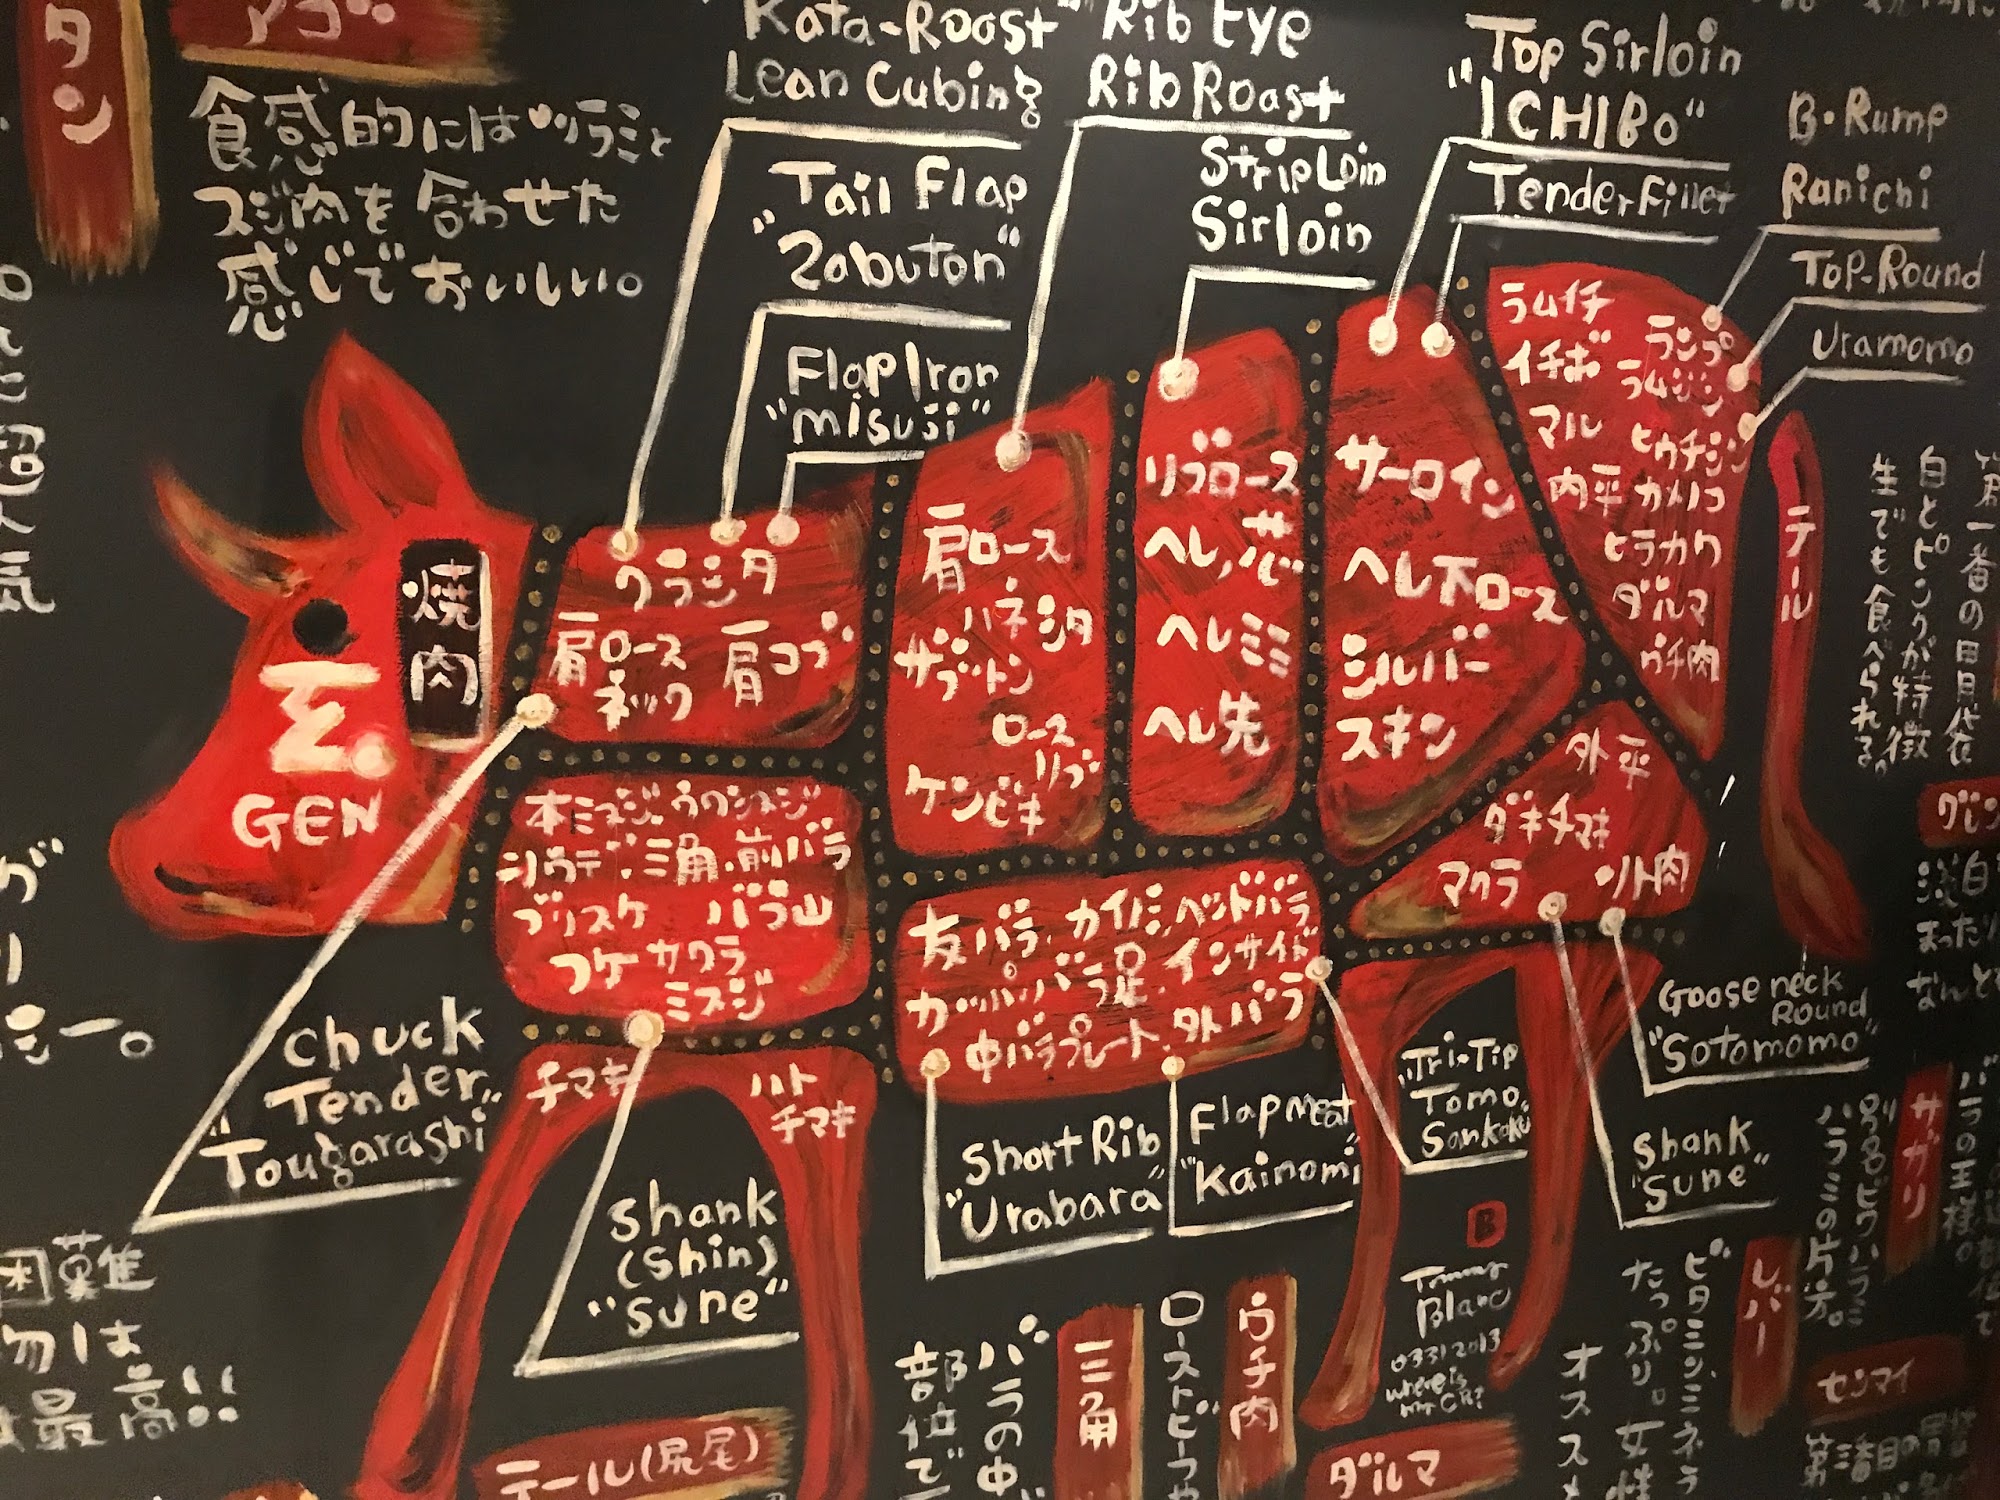 タン
アゴ
食感的にはツラミと
スジ肉を合わせた
感じでおいしい。
"Kata-Roast"
Lean Cubing
Rib Eye
Rib Roast
Top Sirloin
"ICHIBO"
B・Rump
Ranichi
Tail Flap
"Zabuton"
StripLoin
Sirloin
TenderFillet
Top-Round
Uramomo
Flap Iron
"misuji"
焼肉
GEN
クラシタ
肩ロース
ネック
肩コブ
肩ロース
ハネシタ
ザブトン
ロース
リブ
ケンピキ
リブロース
ヘレ
ヘレミミ
ヘレ先
サーロイン
ヘレ下ロース
シルバー
スキン
ラムイチ
イチボ
マル
内平
ランプ
ラムシン
ヒウチ
カメノコ
ヒラカワ
ダルマ
ウチ肉
テール
外平
ダキチマキ
マクラ
ソト肉
本ミスジ.ウワミスジ
シウデ.三角.前バラ
ブリスケ バラ山
コケ サクラ
ミスジ
友バラ.カイノミ.ヘッドバラ
カッパ.バラ足.インサイド
中バラプレート.外バラ
チマキ
ハト
チマキ
Chuck
Tender
"Tougarashi"
Shank
(Shin)
"Sune"
Short Rib
"Urabara"
Flap meat
"Kainomi"
"Tri-Tip
Tomo
Sankaku"
Goose neck
Round
"Sotomomo"
Shank
"Sune"
B
Tommy
Blanc
03312013
where is
Mr Chi?
第一番の目貝袋
白とピンクが特徴
生でも食べられる。
サガリ
バラの王様。
別名ビワハラミ
ハラミの片方。
レバー
ビタミン、ミネラ
たっぷり。女性
オススメ
センマイ
ダルマ
ウチ肉
ローストビーフや
三角
バラの中
部位で
テール(尻尾)
困難
勿は
最高!!